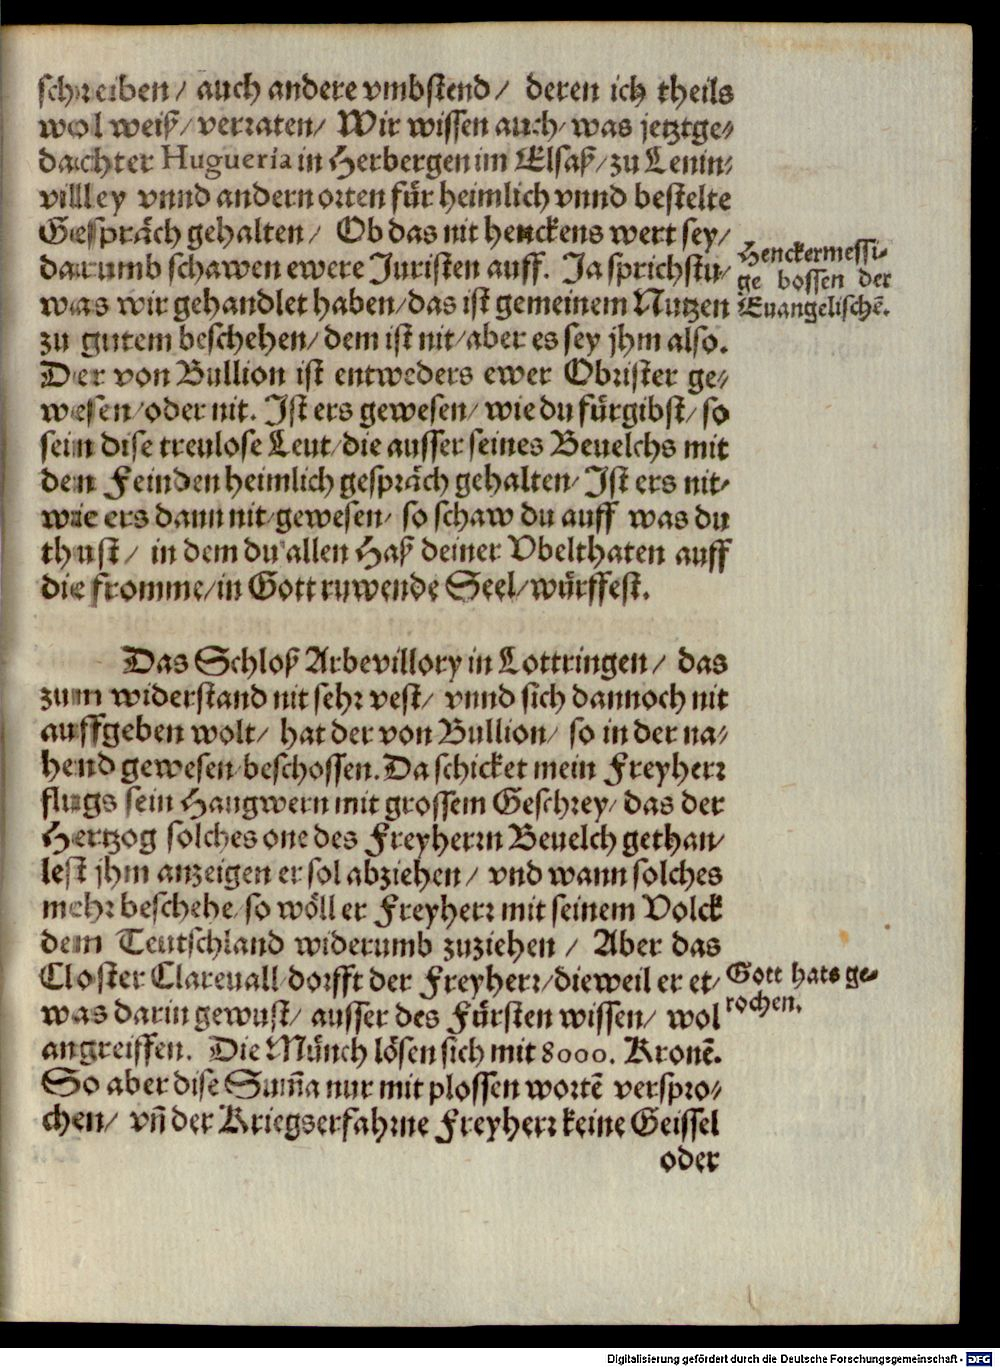 schreiben/ auch andere vmbstend/ deren ich theils
wol weiß/ verraten/ Wir wissen auch/ was jetztge-
dachter Hugueria in Herbergen im Elsaß/ zu Lenin-
villley vnnd andern orten für heimlich vnnd bestelte
Gespräch gehalten/ Ob das nit henckens wert sey/
darumb schawen ewere Juristen auff. Ja sprichstu/
was wir gehandlet haben/ das ist gemeinem Nutzen
zu gutem beschehen/ dem ist nit/ aber es sey jhm also.
Der von Bullion ist entweders ewer Obrister ge-
wesen/ oder nit. Ist ers gewesen/ wie du fürgibst/ so
sein dise treulose Leut/ die ausser seines Beuelchs mit
den Feinden heimlich gespräch gehalten/ Ist ers nit-
wie ers dann nit gewesen/ so schaw du auff was du
thust/ in dem du allen Haß deiner Vbelthaten auff
die fromme/ in Gott ruwende Seel/ würffest.
Henckermessi-
ge bossen der
Euangelischē.
Das Schloß Arbevillory in Lottringen/ das
zum widerstand nit sehr vest/ vnnd sich dannoch nit
auffgeben wolt/ hat der von Bullion/ so in der na-
hend gewesen/ beschossen. Da schicket mein Freyherr
flugs sein Haugwern mit grossem Geschrey/ das der
Hertzog solches one des Freyherrn Beuelch gethan/
lest jhm anzeigen er sol abziehen/ vnd wann solches
mehr beschehe/ so wöll er Freyherr mit seinem Volck
dem Teutschland widerumb zuziehen/ Aber das
Closter Clareuall dorfft der Freyherr/ dieweil er et-
was darin gewust/ ausser des Fürsten wissen/ wol
angreiffen. Die Münch lösen sich mit 8000. Kronē.
So aber dise Sum̄a nur mit plossen wortē verspro-
chen/ vn̄ der Kriegserfahrne Freyherr keine Geissel
oder
Gott hats ge-
rochen.
Digitalisierung gefördert durch die Deutsche Forschungsgemeinschaft - DFG